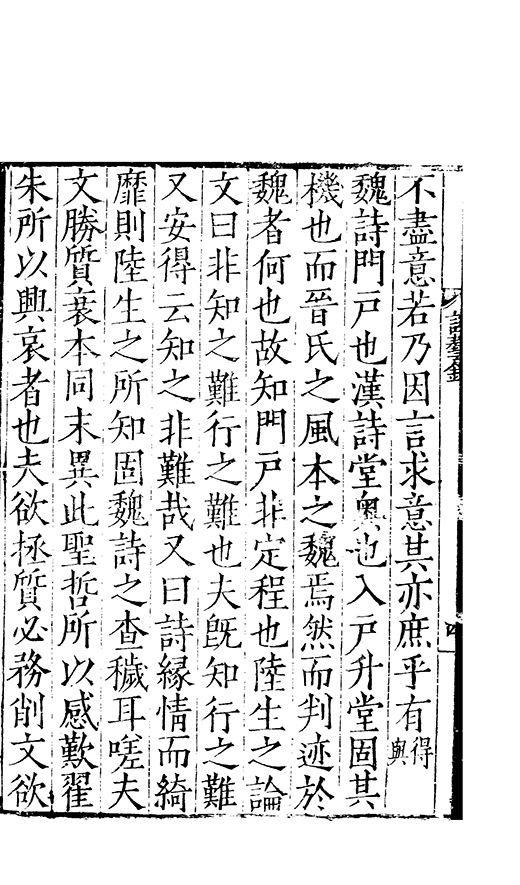 不盡意若乃因言求意其亦庶乎有得與
魏詩門戸也漢詩堂奧也入戸升堂固其
機也而晉氏之風本之魏焉然而判迹於
魏者何也故知門戸非定程也陸生之論
文曰非知之難行之難也夫旣知行之難
又安得云知之非難哉又曰詩緣情而綺
靡則陸生之所知固魏詩之查穢耳嗟夫
文勝質衰本同末異此聖哲所以感歎翟
朱所以興哀者也夫欲拯質必務削文欲